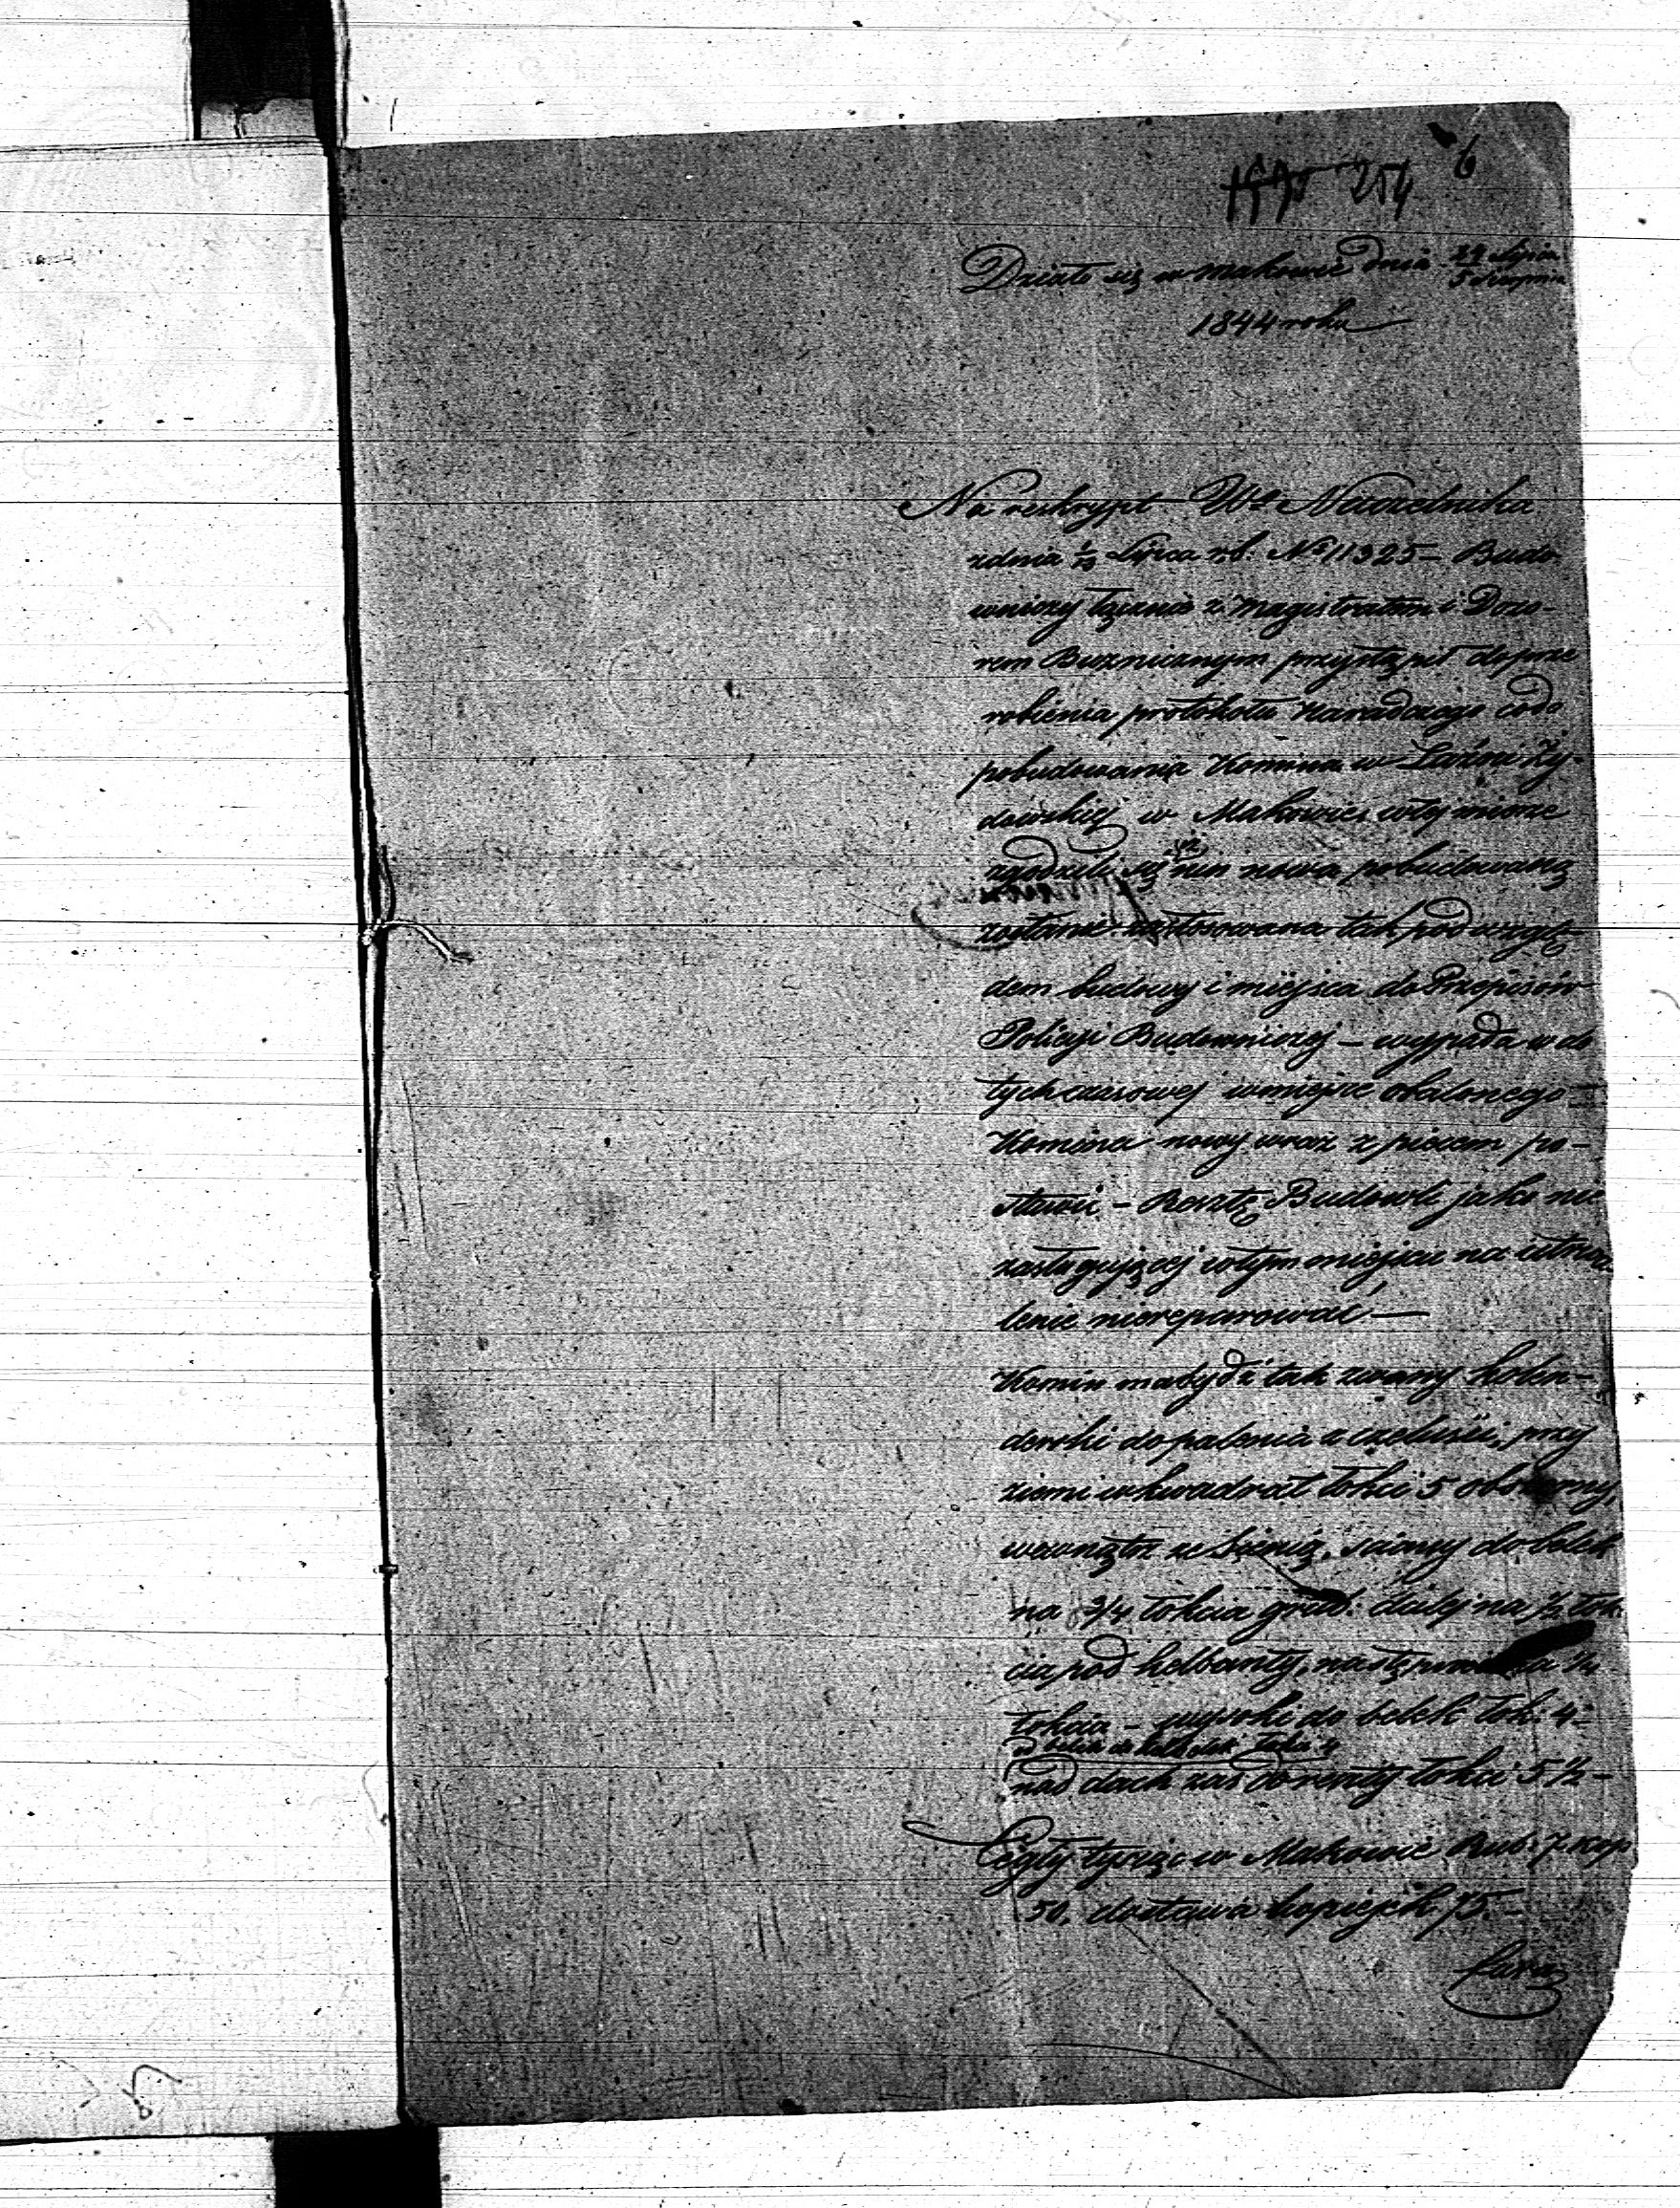 254 6
Działo się w Makowie dnia 24 Lipca
5 Sierpnia
1844 roku
Na reskrypt Wo Naczelnika
zdnia 1/13 Lipca rb. No 11325 – Budo
wniczy łącznie z Magistratem i Dozo-
rem Bużnicznym przystąpił do prze
robienia protokołu Naradczego codo
pobudowania Komina w Łaźni Ży-
dowskiej w Makowie, wtej mierze
zgodzili się nim nowa pobudowaną
zostanie zastosowana tak pod wzglę-
dem budowy i miejsca do Przepisów
Policyi Budowniczej – wypada w do
tychczasowej wmiejsce obalonego
Komina nowy wraz z piecem po-
stawić – Resztę Budowli jako nie
zasługującej wtym miejscu na utrwa
lenie niereparować –
Komin mabydź tak zwany holen-
derski do palenia z czeluści, przy
ziemi w kwadrat łokci 5 obszerny,
wewnątrz ze sienią, ściany do belek
na 3/4 łokcia grub: dalej na 1/2 łok
cia pod kelbanty, następnie 1/4
łokcia – wysoki do belek łok: 4 –
łokci 4
nad dach zaś łokci 5 1/2 –
Cegły tysiąc w Makowie Rub. 7 kop
50, dostawa kopiejek 75. –